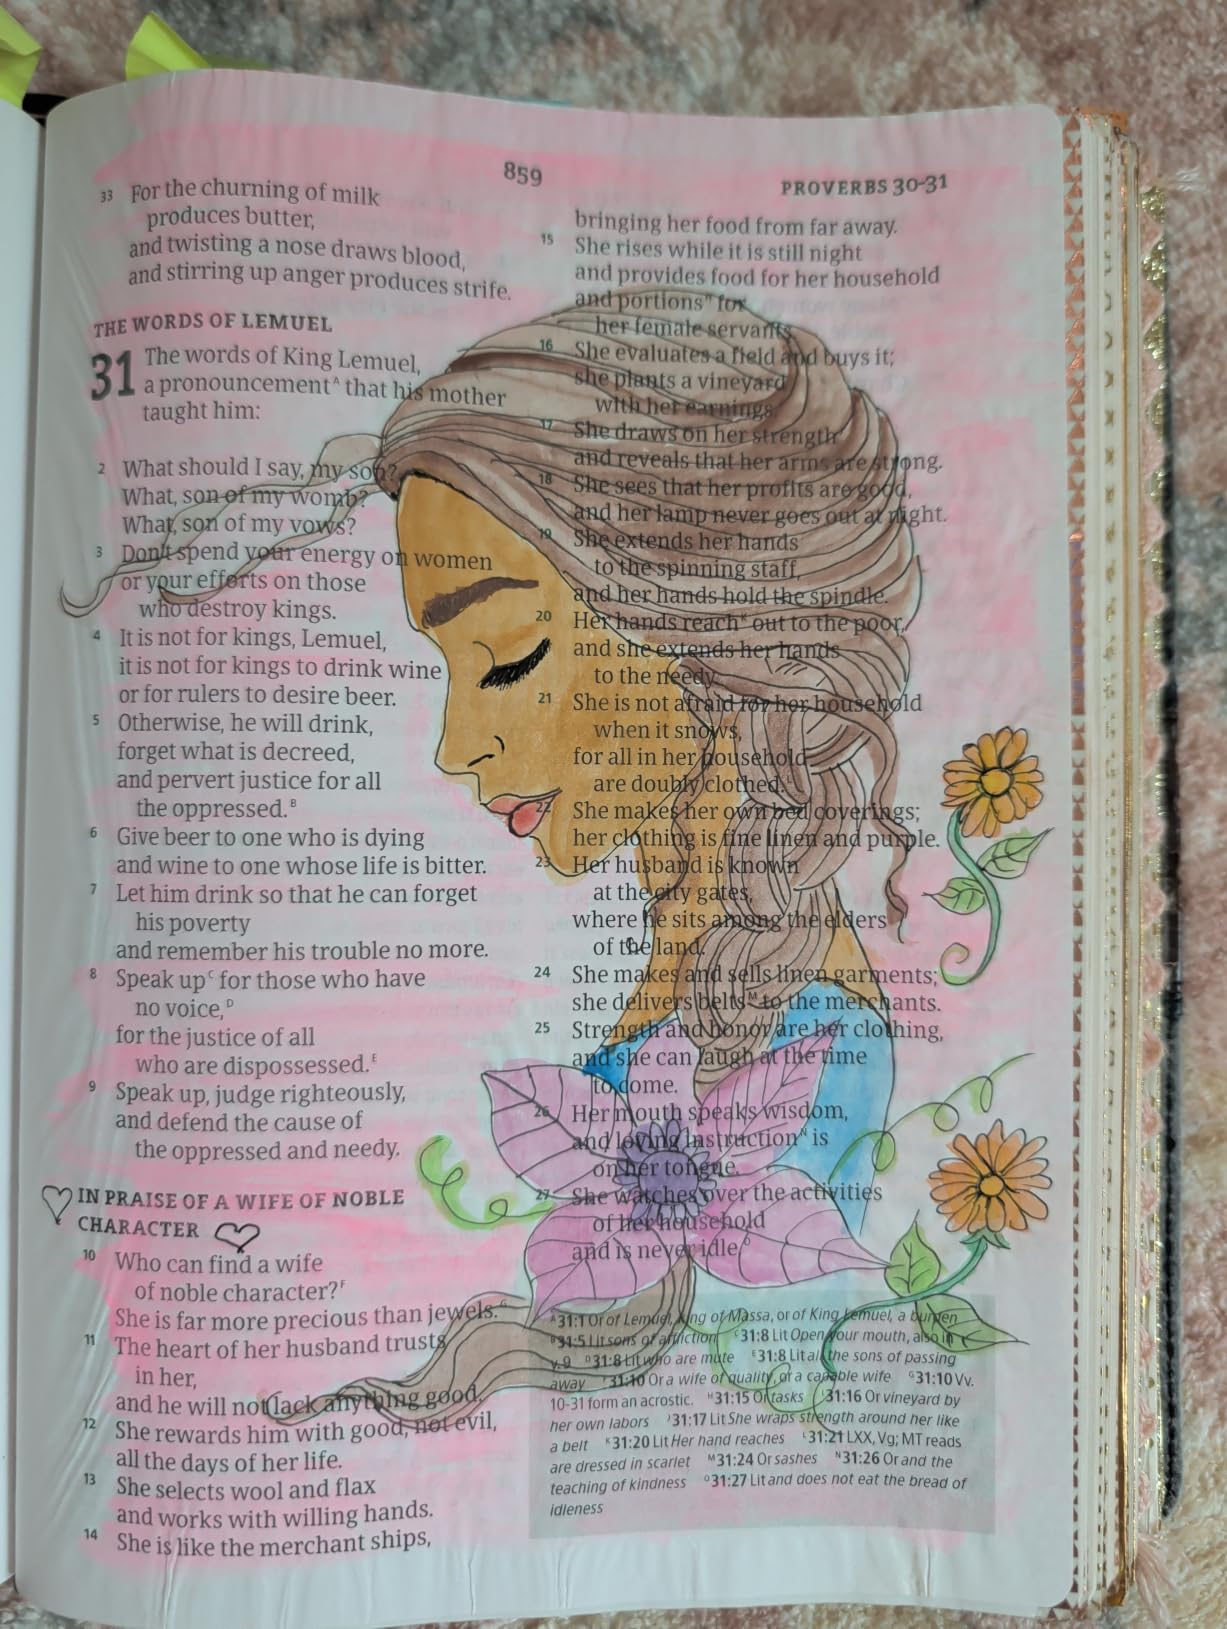 859
PROVERBS 30-31
33 For the churning of milk
produces butter,
and twisting a nose draws blood,
and stirring up anger produces strife.
THE WORDS OF LEMUEL
31 The words of King Lemuel,
a pronouncementᴬ that his mother
taught him:
2 What should I say, my son?
What, son of my womb?
What, son of my vows?
3 Don't spend your energy on women
or your efforts on those
who destroy kings.
4 It is not for kings, Lemuel,
it is not for kings to drink wine
or for rulers to desire beer.
5 Otherwise, he will drink,
forget what is decreed,
and pervert justice for all
the oppressed.ᴮ
6 Give beer to one who is dying
and wine to one whose life is bitter.
7 Let him drink so that he can forget
his poverty
and remember his trouble no more.
8 Speak upᶜ for those who have
no voice,ᴰ
for the justice of all
who are dispossessed.ᴱ
9 Speak up, judge righteously,
and defend the cause of
the oppressed and needy.
IN PRAISE OF A WIFE OF NOBLE
CHARACTER
10 Who can find a wife
of noble character?ꟳ
She is far more precious than jewels.ᴳ
11 The heart of her husband trusts
in her,
and he will not lack anything good.
12 She rewards him with good, not evil,
all the days of her life.
13 She selects wool and flax
and works with willing hands.
14 She is like the merchant ships,
bringing her food from far away.
15 She rises while it is still night
and provides food for her household
and portionsᴴ for
her female servants.
16 She evaluates a field and buys it;
she plants a vineyard
with her earnings.
17 She draws on her strength
and reveals that her arms are strong.
18 She sees that her profits are good,
and her lamp never goes out at night.
19 She extends her hands
to the spinning staff,
and her hands hold the spindle.
20 Her hands reachᴷ out to the poor,
and she extends her hands
to the needy.
21 She is not afraid for her household
when it snows,
for all in her household
are doubly clothed.ᴸ
22 She makes her own bed coverings;
her clothing is fine linen and purple.
23 Her husband is known
at the city gates,
where he sits among the elders
of the land.
24 She makes and sells linen garments;
she delivers beltsᴹ to the merchants.
25 Strength and honor are her clothing,
and she can laugh at the time
to come.
26 Her mouth speaks wisdom,
and loving instructionᴺ is
on her tongue.
27 She watches over the activities
of her household
and is never idle.ᴼ
ᴬ31:1 Or of Lemuel, king of Massa, or of King Lemuel, a burden
ᴮ31:5 Lit sons of affliction ᶜ31:8 Lit Open your mouth, also in
v. 9 ᴰ31:8 Lit who are mute ᴱ31:8 Lit all the sons of passing
away ꟳ31:10 Or a wife of quality, or a capable wife ᴳ31:10 Vv.
10-31 form an acrostic. ᴴ31:15 Or tasks ᴵ31:16 Or vineyard by
her own labors ᴶ31:17 Lit She wraps strength around her like
a belt ᴷ31:20 Lit Her hand reaches ᴸ31:21 LXX, Vg; MT reads
are dressed in scarlet ᴹ31:24 Or sashes ᴺ31:26 Or and the
teaching of kindness ᴼ31:27 Lit and does not eat the bread of
idleness